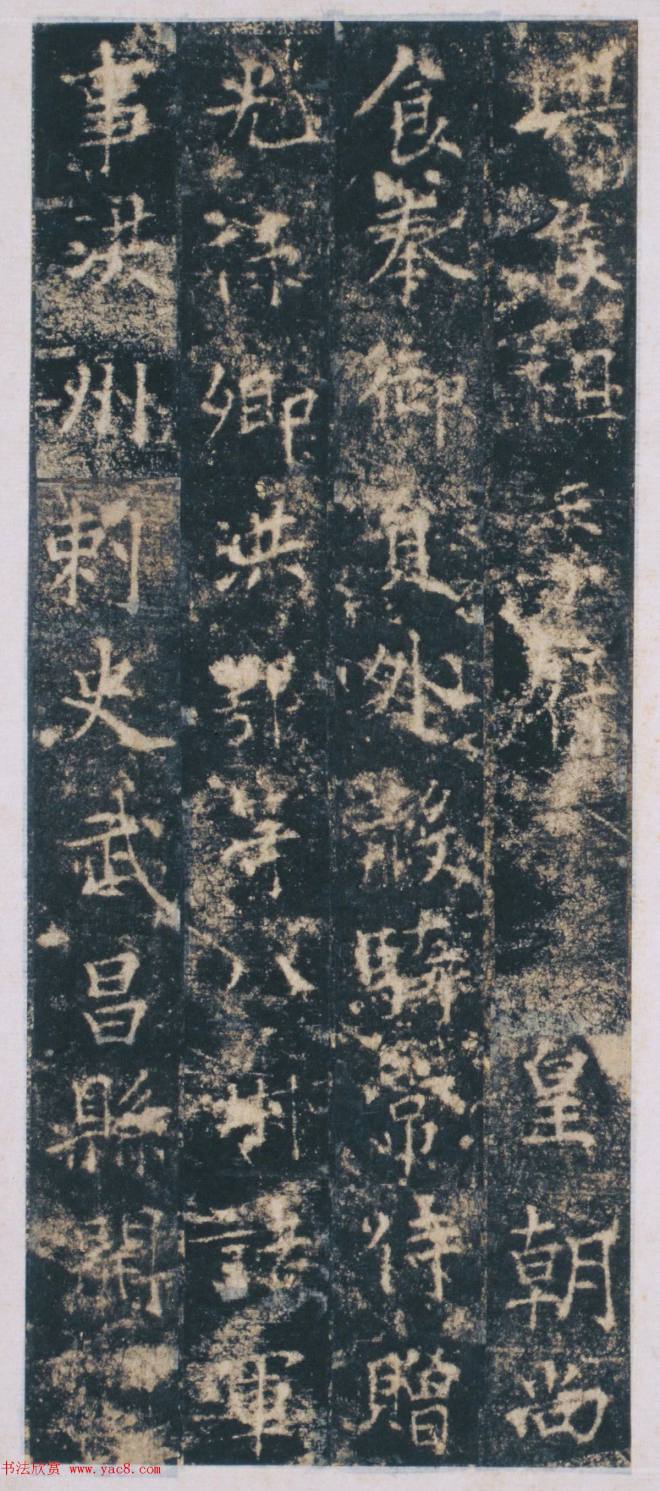 侯祖皇朝尚
食奉御員外散騎常侍贈
光祿卿洪鄂等八州諸軍
事洪州刺史武昌縣開
书法欣赏 www.yac8.com